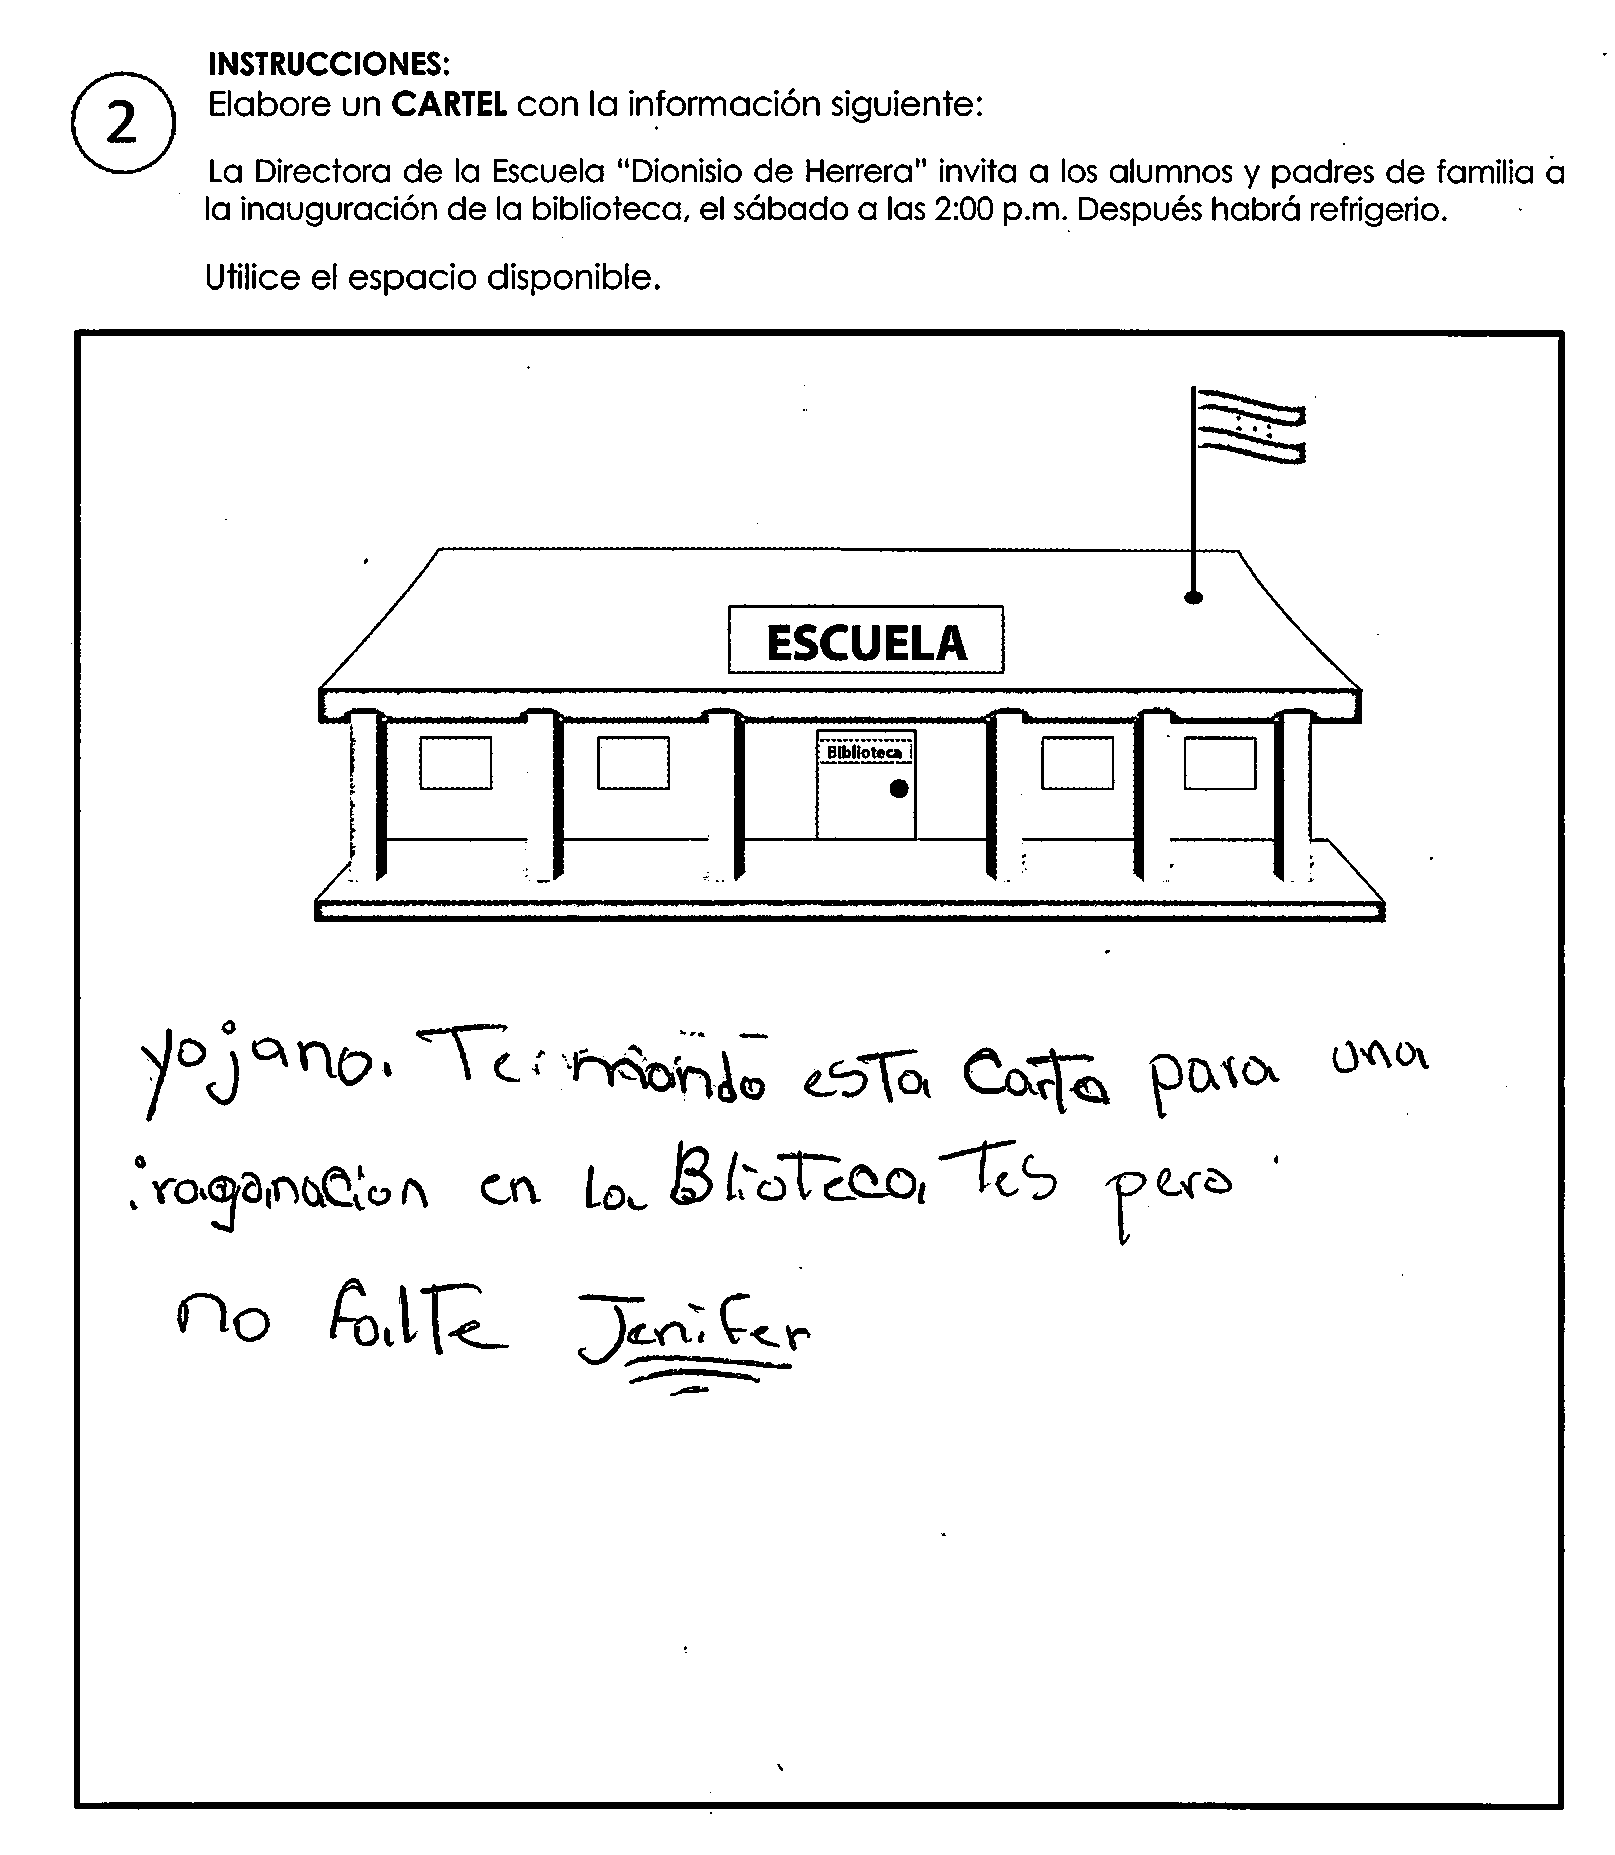 INSTRUCCIONES:
2
Elabore un CARTEL con la información siguiente:
La Directora de la Escuela "Dionisio de Herrera" invita a los alumnos y padres de familia a
la inauguración de la biblioteca, el sábado a las 2:00 p.m. Después habrá refrigerio.
Utilice el espacio disponible.
ESCUELA
Biblioteca
yojano. Te mando esta Carta para una
iraganacion en la Blioteca Tes pero
no falte Jenifer